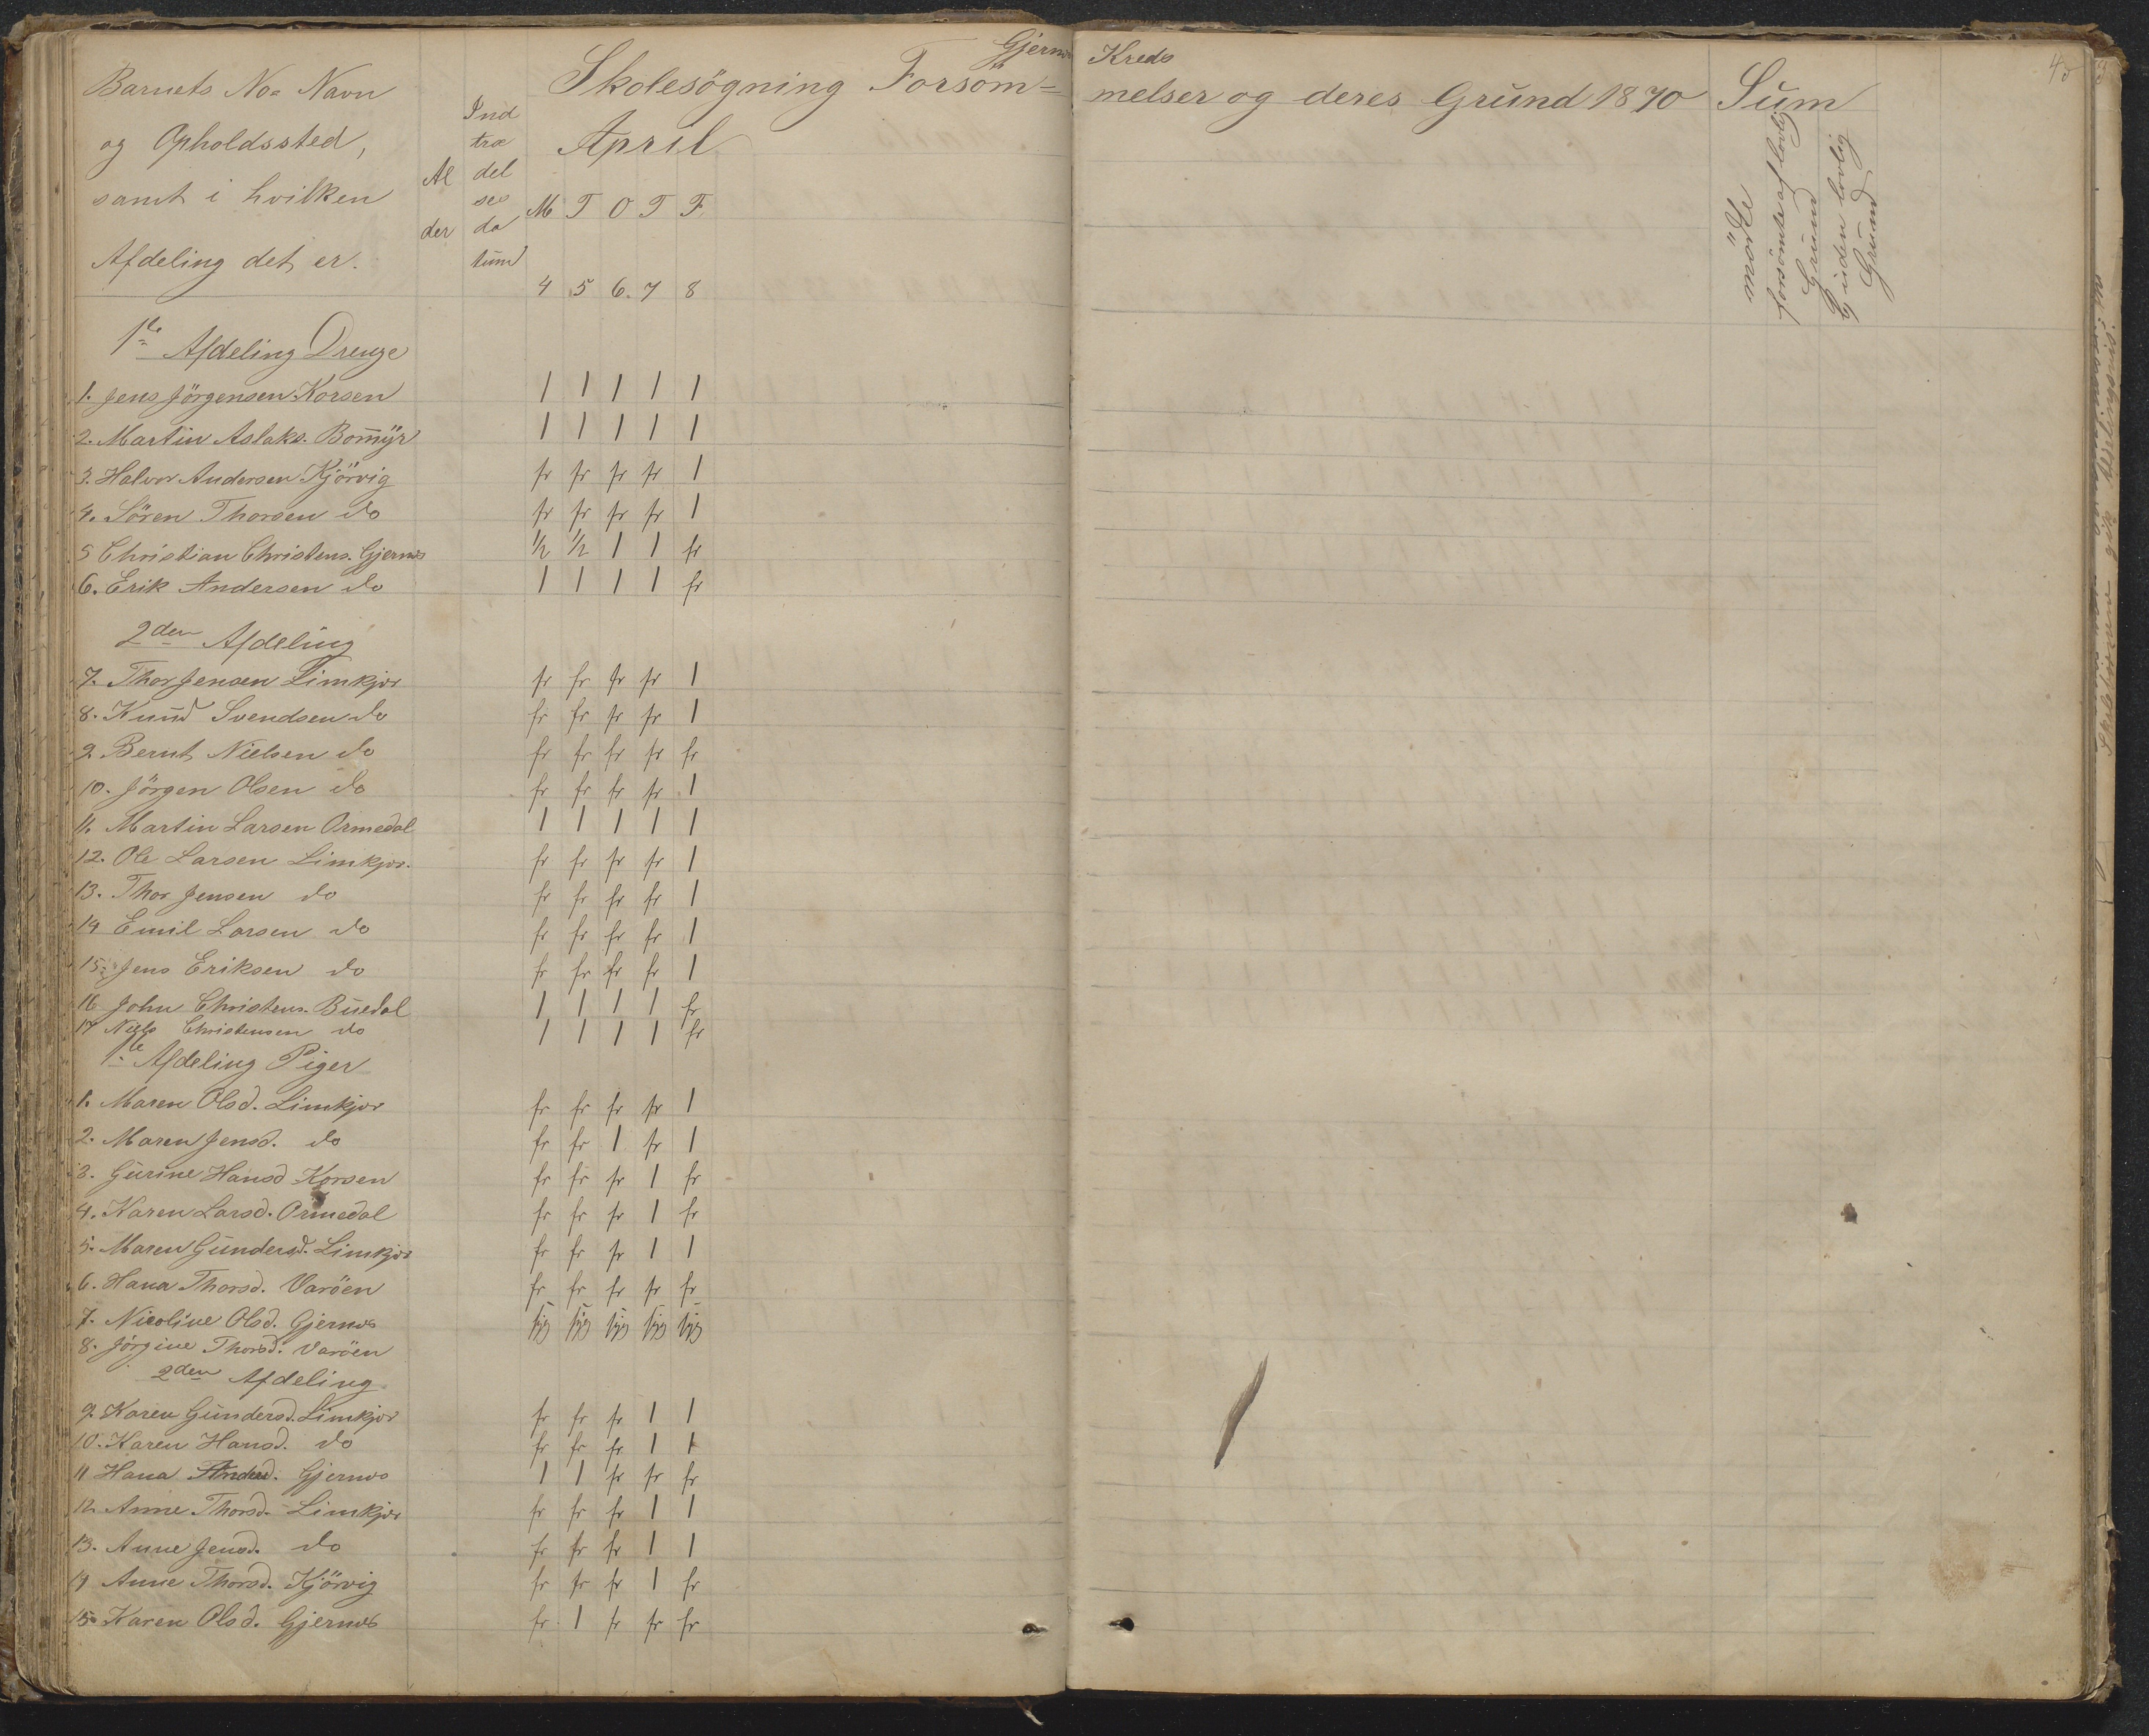 Gjernæs Kreds
45
Barnets No= Navn
og Opholdssted,
samt i hvilken
Afdeling det er.
Al
der
Ind
træ
del
ses
da
tum
Skolesögning Forsöm=
melser og deres Grund 1870
Sum
April
M T O T F
4 5 6. 7 8
mödte
forsömte af lovlig
Grund
uden lovlig
Grund
1te Afdeling Drenge
1. Jens Jörgensen Korsen 1 1 1 1 1
2. Martin Aslaks. Bommyr 1 1 1 1 1
3. Halvor Andersen Kjörvig fr fr fr fr 1
4. Sören Thorsen do fr fr fr fr 1
5 Christian Christens. Gjernæs 1/2 1/2 1 1 fr
6. Erik Andersen do 1 1 1 1 fr
2den Afdeling
7. Thor Jensen Limkjær fr fr fr fr 1
8. Knud Svendsen do fr fr fr fr 1
9. Bernt Nielsen do fr fr fr fr fr
10. Jörgen Olsen do fr fr fr fr 1
11. Martin Larsen Ormedal 1 1 1 1 1
12. Ole Larsen Limkjær. fr fr fr fr 1
13. Thor Jensen do fr fr fr fr 1
14 Emil Larsen do fr fr fr fr 1
15. Jens Eriksen do fr fr fr fr 1
16 John Christens. Buedal 1 1 1 1 fr
17 Niels Christensen do 1 1 1 1 fr
1te Afdeling Piger
1. Maren Olsd. Limkjær fr fr fr fr 1
2. Maren Jensd. do fr fr 1 fr 1
3. Gurine Hansd Korsen fr fr fr 1 fr
4. Karen Larsd. Ormedal fr fr fr 1 fr
5. Maren Gundersd. Limkjær fr fr fr 1 1
6. Hana Thorsd. Varöen fr fr fr fr fr
7. Nicoline Olsd. Gjernæs syg syg syg syg syg
8. Jörgine Thorsd. Varöen
2den Afdeling
9. Karen Gundersd. Limkjær fr fr fr 1 1
10. Karen Hansd. do fr fr fr 1 1
11 Hana Andersd. Gjernæs 1 1 fr fr fr
12 Anne Thorsd. Limkjær fr fr fr 1 1
13. Anne Jensd. do fr fr fr 1 1
14 Anne Thorsd. Kjörvig fr fr fr 1 fr
15. Karen Olsd. Gjernæs fr 1 fr fr fr